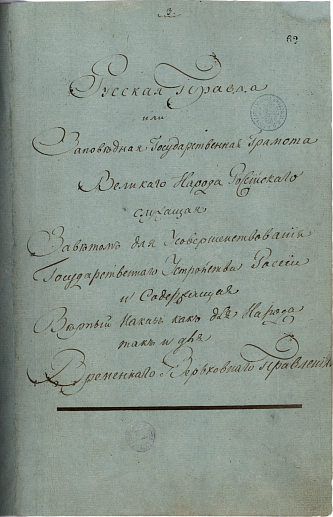 62
Русская Правда
или
Заповѣдная Государственная Грамота
Великаго Народа Россїйскаго
служащая
Завѣтомъ для Усовершенствованія
Государственнаго Устройства Россіи
и Содержащая
Вѣрный Наказъ какъ для Народа
такъ и для
Временнаго Верьховнаго Правленія